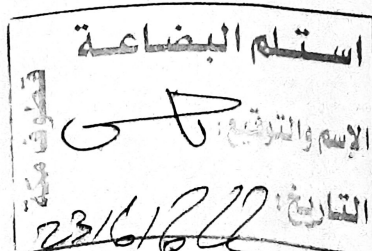 استلم البضاعة
الإسم والتوقيع:
التاريخ: 23/6/2022
قطوف مكة